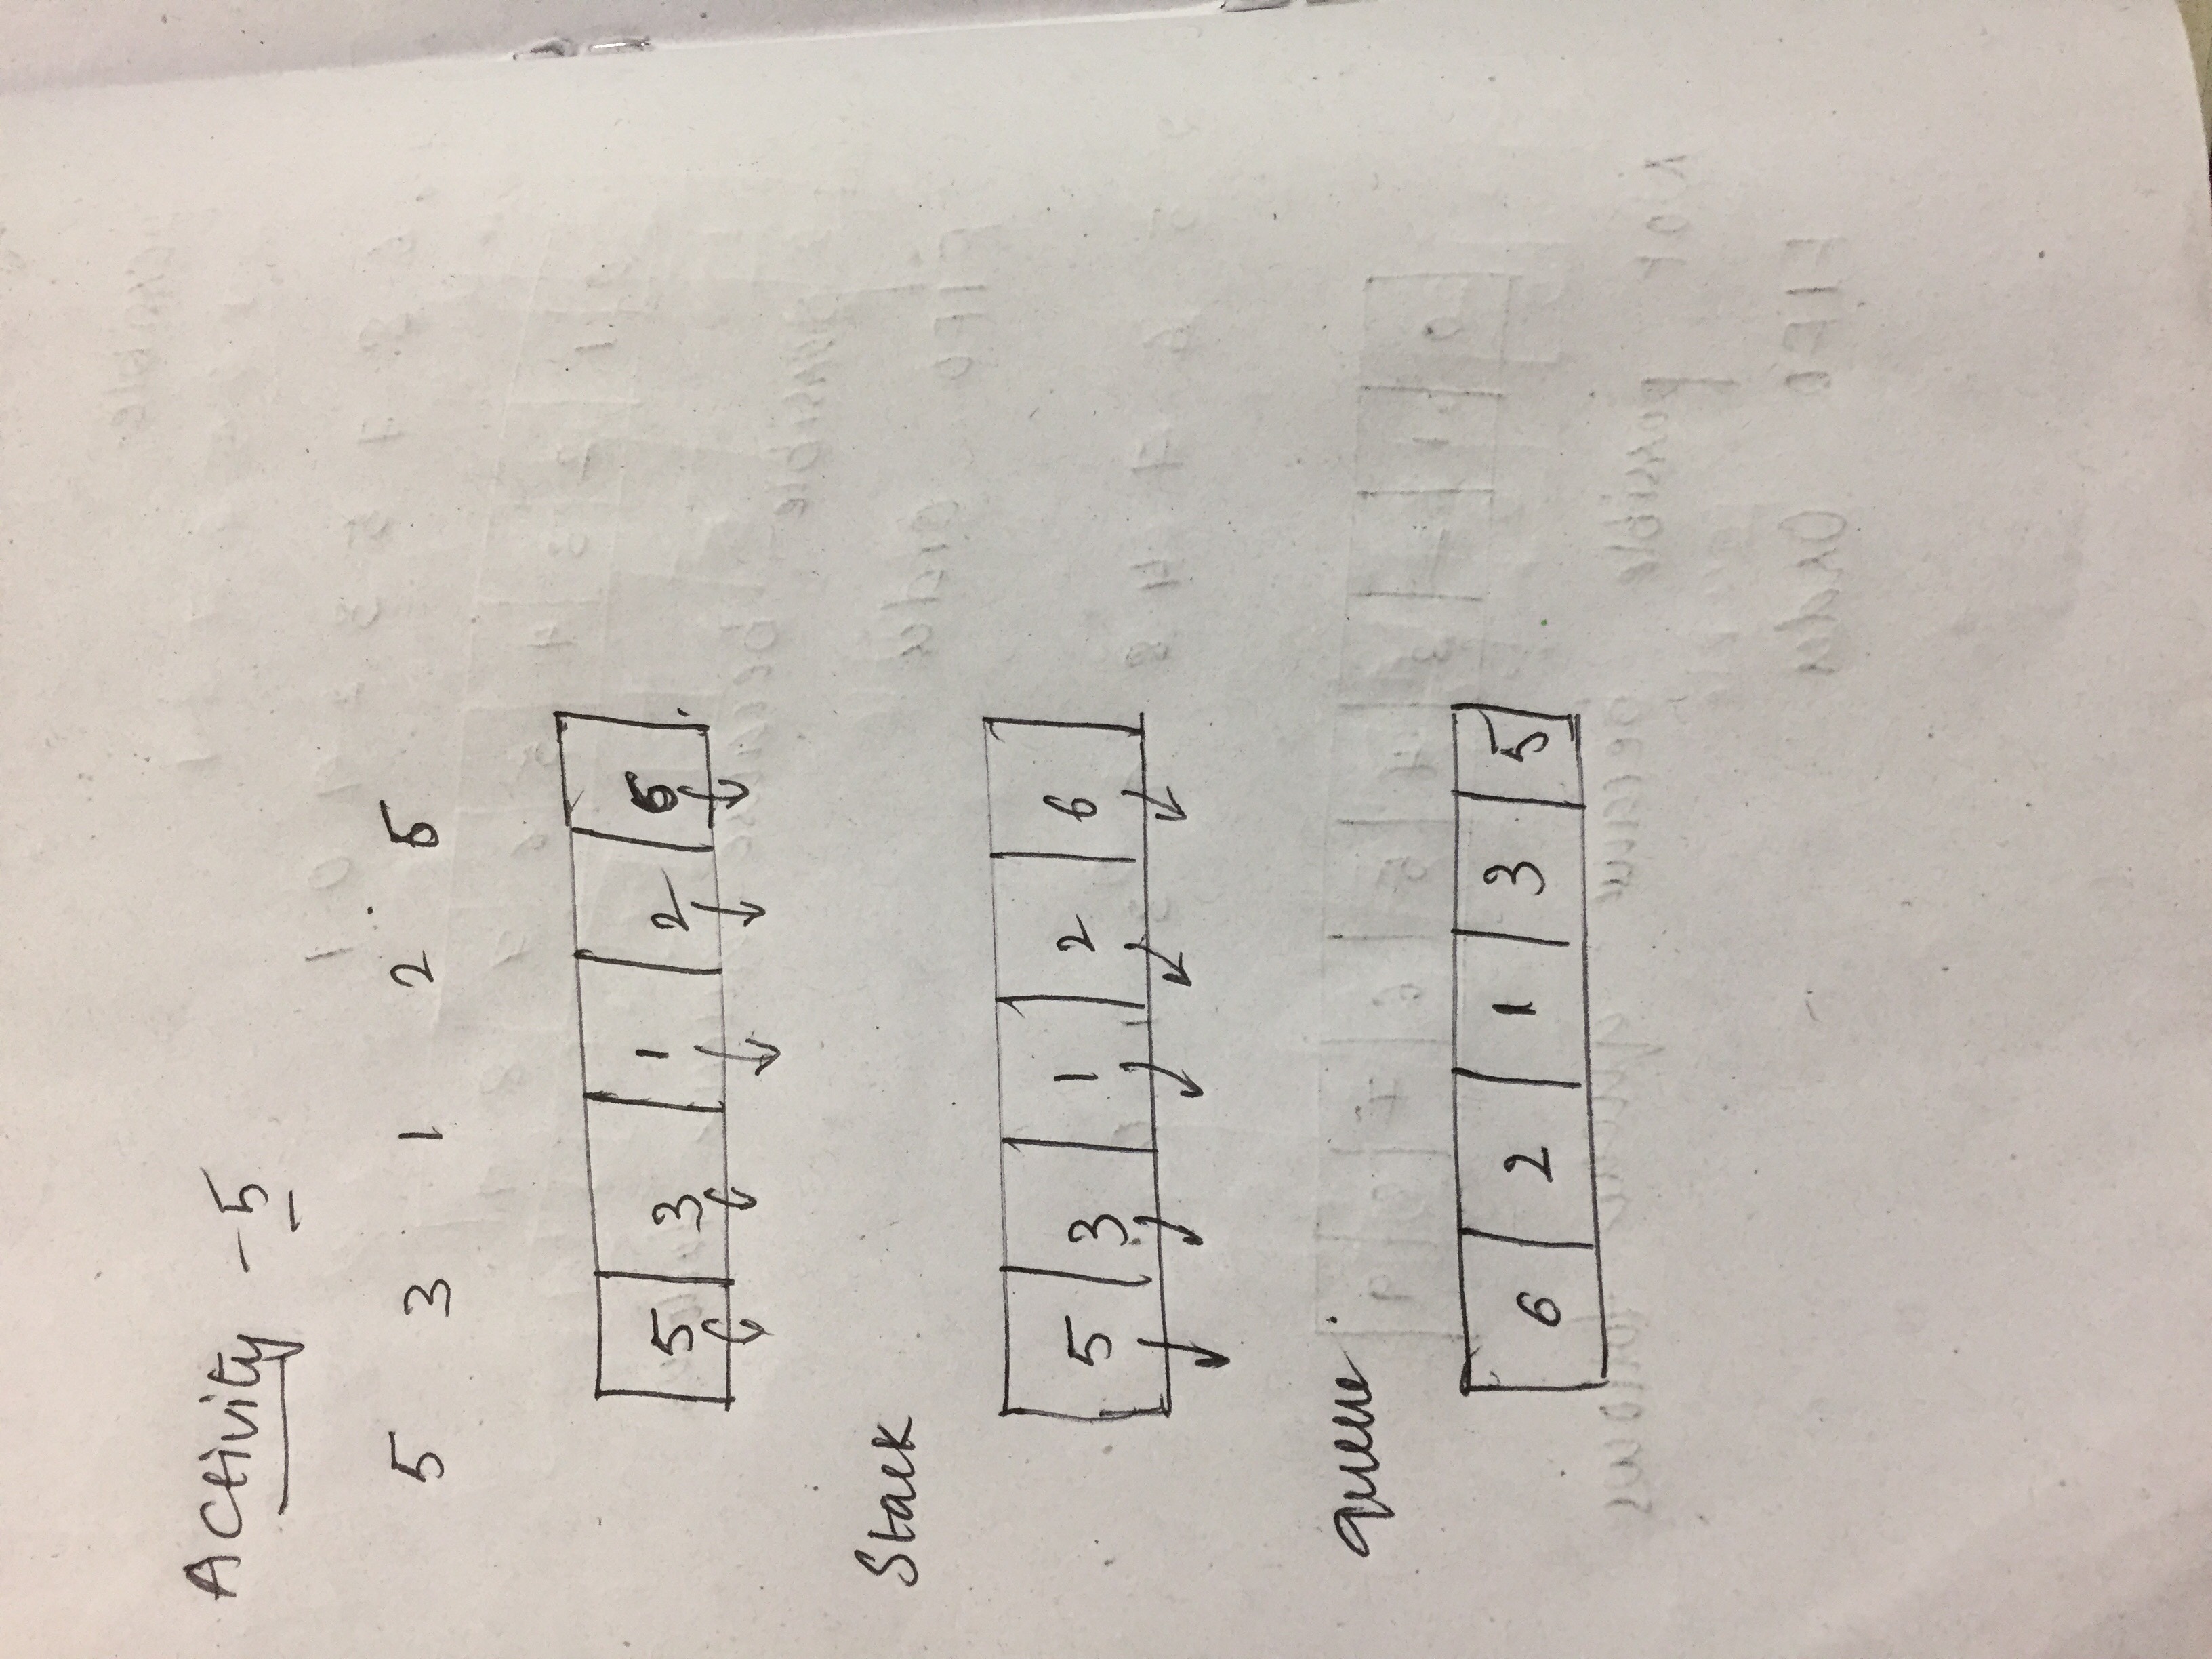 Activity - 5
5 3 1 2 6
5 3 1 2 6
Stack
5 3 1 2 6
queue
6 2 1 3 5